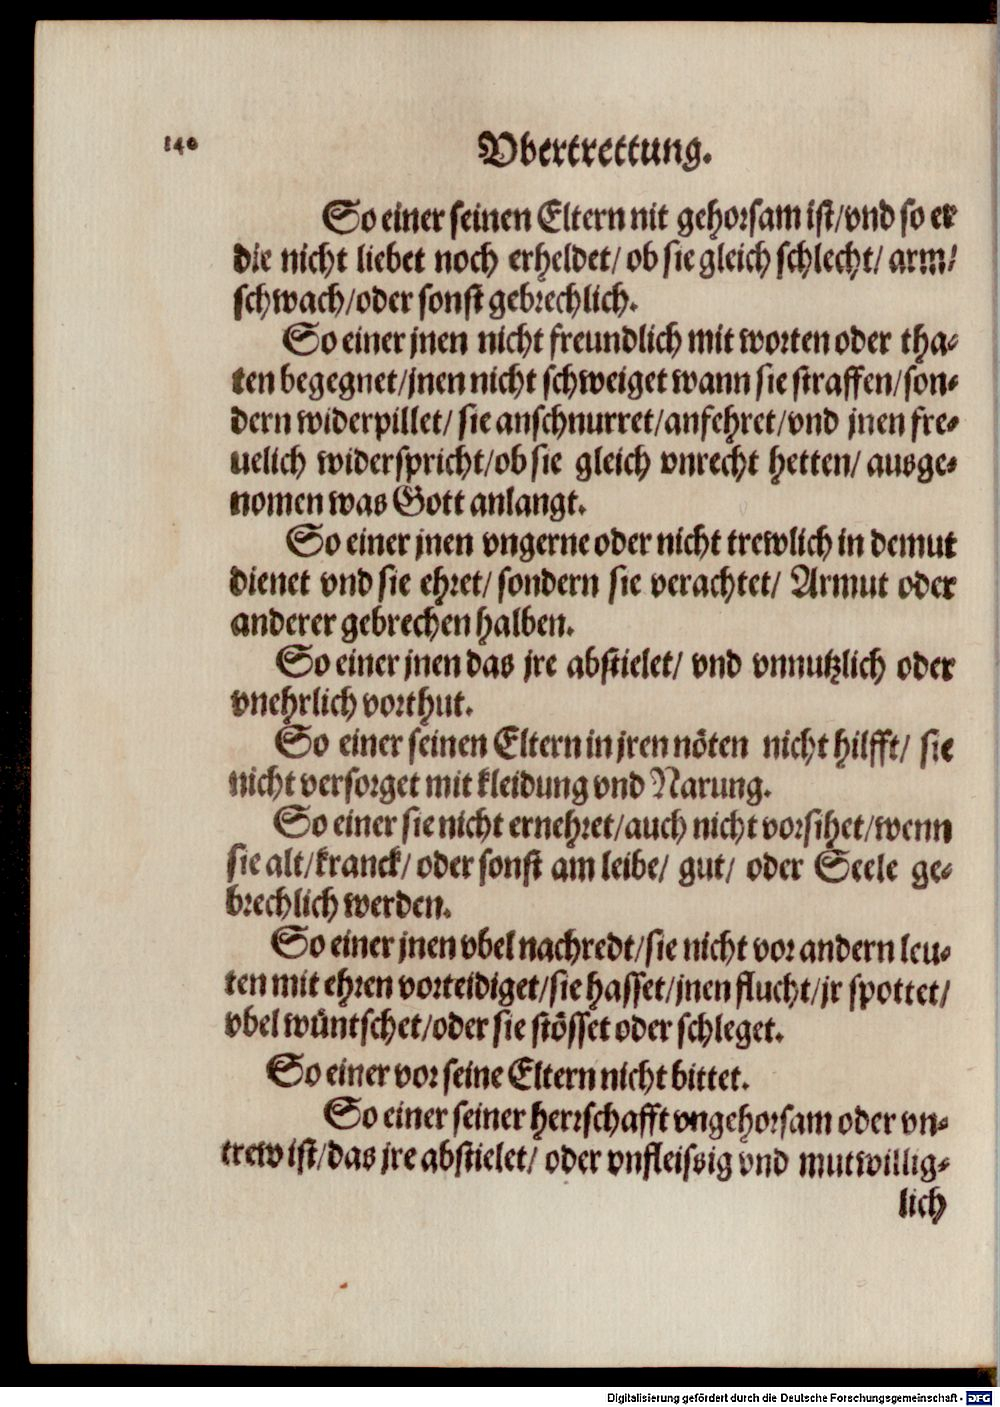 140
Vbertrettung.
So einer seinen Eltern nit gehorsam ist/vnd so er
die nicht liebet noch erheldet/ ob sie gleich schlecht/ arm/
schwach/oder sonst gebrechlich.
So einer jnen nicht freundlich mit worten oder tha⸗
ten begegnet/jnen nicht schweiget wann sie straffen/son⸗
dern widerpillet/ sie anschnurret/anfehret/vnd jnen fre⸗
uelich widerspricht/ob sie gleich vnrecht hetten/ ausge⸗
nomen was Gott anlangt.
So einer jnen vngerne oder nicht trewlich in demut
dienet vnd sie ehret/ sondern sie verachtet/ Armut oder
anderer gebrechen halben.
So einer jnen das jre abstielet/ vnd vnnutzlich oder
vnehrlich vorthut.
So einer seinen Eltern in jren nöten nicht hilfft/ sie
nicht versorget mit kleidung vnd Narung.
So einer sie nicht ernehret/auch nicht vorsihet/wenn
sie alt/kranck/ oder sonst am leibe/ gut/ oder Seele ge⸗
brechlich werden.
So einer jnen vbel nachredt/sie nicht vor andern leu⸗
ten mit ehren vorteidiget/sie hasset/jnen flucht/jr spottet/
vbel wüntschet/oder sie stösset oder schleget.
So einer vor seine Eltern nicht bittet.
So einer seiner herrschafft vngehorsam oder vn⸗
trew ist/das jre abstielet/ oder vnfleissig vnd mutwillig⸗
lich
Digitalisierung gefördert durch die Deutsche Forschungsgemeinschaft - DFG